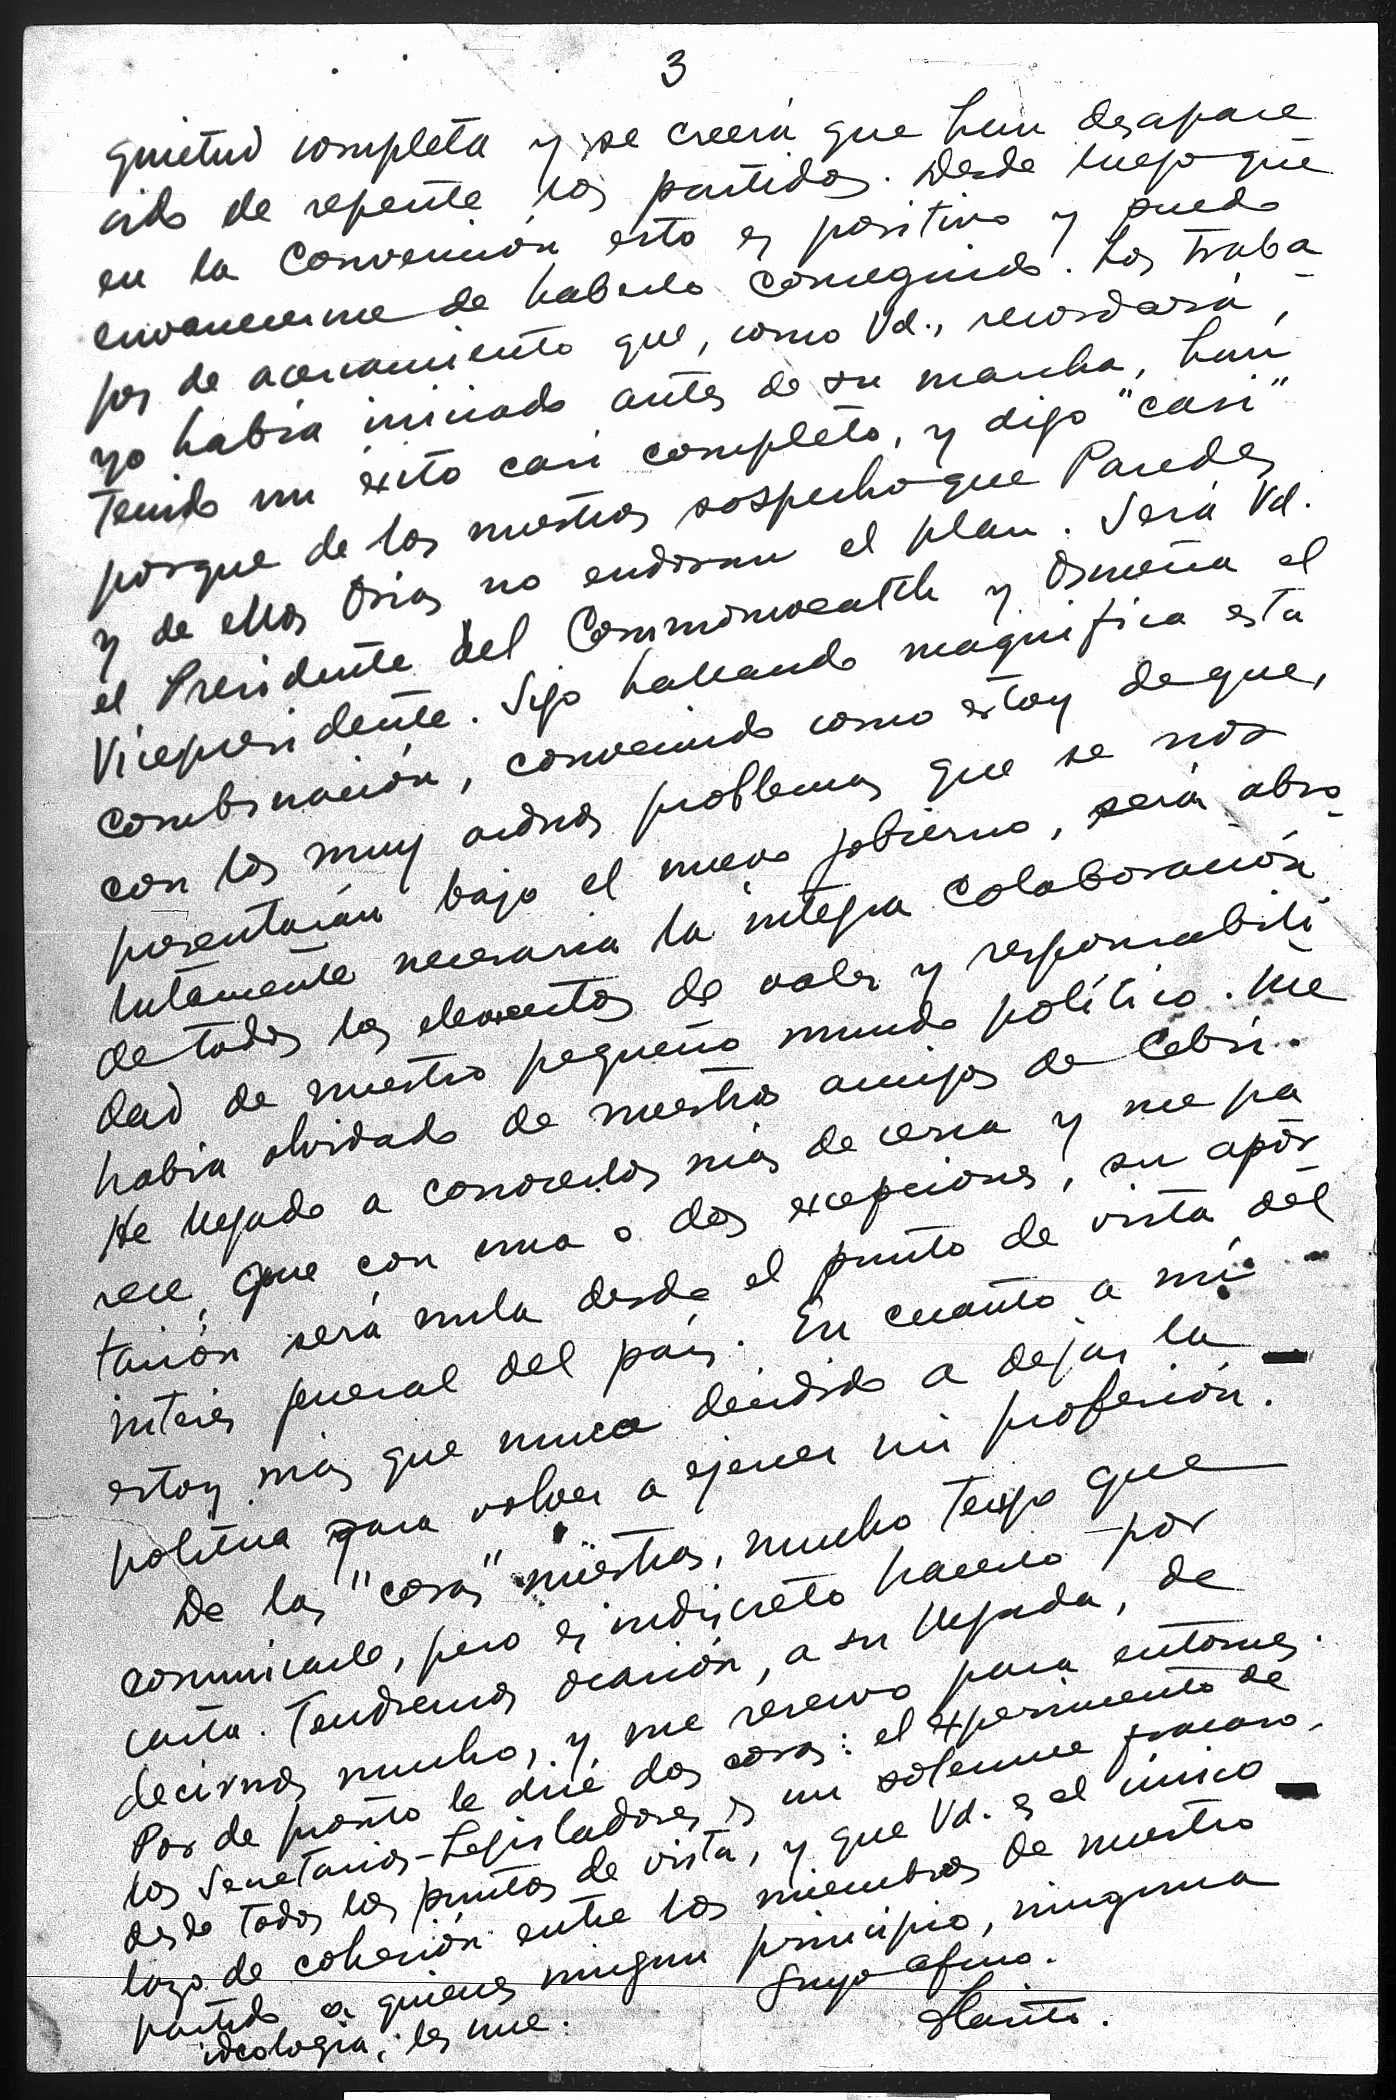 3
quietud completa y se creerá que han desapare
cido de repente los partidos. Desde luego que
en la Convención esto es positivo y puedo
envanecerme de haberlo conseguido. Los traba
jos de acercamiento que, como Vd., recordará,
yo había iniciado antes de su marcha, han
tenido un éxito casi completo, y digo "casi"
porque de los nuestros sospecho que Paredes
y de ellos Osias no endosan el plan. Será Vd.
el Presidente del Commonwealth y Osmeña el
Vicepresidente. Sigo hallando magnifica esta
combinación, convencido como estoy de que,
con los muy arduos problemas que se nos
presentarán bajo el nuevo gobierno, será abso
lutamente necesaria la integra colaboración
de todos los elementos de valer y responsabili
dad de nuestro pequeño mundo político. Me
habia olvidado de nuestros amigos de Cebú.
He llegado a conocerlos más de cerca y me pa
rece, que con una o dos excepciones, su apor
tación será nula desde el punto de vista del
interés general del país. En cuanto a mí
estoy más que nunca decidido a dejar la
politica para volver a ejercer mi profesión.
De las "cosas" nuestras, mucho tengo que
comunicarle, pero es indiscreto hacerlo por
carta. Tendremos ocasión, a su llegada, de
decirnos mucho, y me reservo para entonces.
Por de pronto le diré dos cosas: el experimento de
los Secretarios-Legisladores es un solemne fracaso,
desde todos los puntos de vista, y que Vd. es el único
lazo de cohesión entre los miembros de nuestro
partido a quienes ningun principio, ninguna
ideologia, les une.
Suyo afmo.